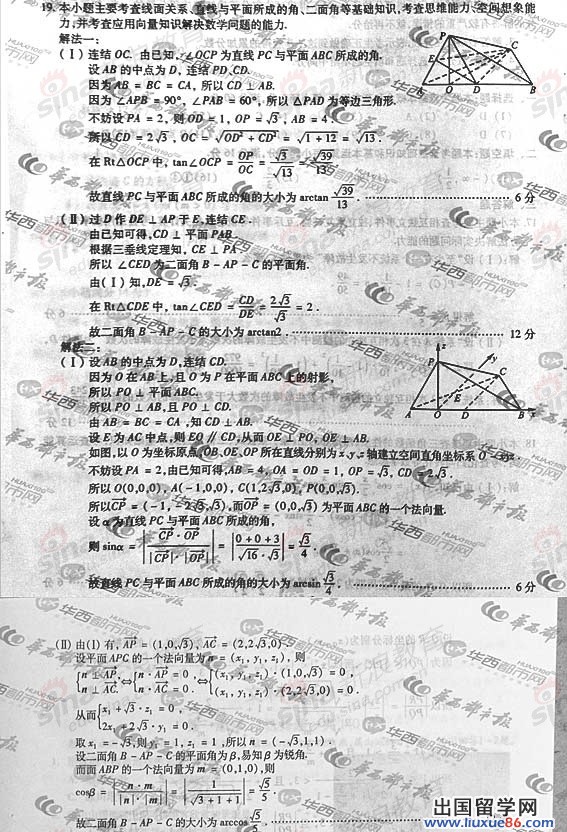 19. 本小题主要考查线面关系、直线与平面所成的角、二面角等基础知识,考查思维能力、空间想象能
力,并考查应用向量知识解决数学问题的能力.
解法一:
(Ⅰ)连结OC. 由已知,∠OCP为直线PC与平面ABC所成的角.
设AB的中点为D,连结PD、CD.
因为AB = BC = CA,所以CD ⊥ AB.
因为∠APB = 90°,∠PAB = 60°,所以△PAD为等边三角形.
不妨设PA = 2,则OD = 1,OP = √3,AB = 4.
所以CD = 2√3,OC = √(OD² + CD²) = √(1 + 12) = √13.
在Rt△OCP中,tan∠OCP = OP/OC = √3/√13 = √39/13.
故直线PC与平面ABC所成的角的大小为arctan √39/13. ………… 6分
(Ⅱ)过D作DE ⊥ AP于E,连结CE.
由已知可得,CD ⊥ 平面PAB.
根据三垂线定理知,CE ⊥ PA.
所以∠CED为二面角B - AP - C的平面角.
由(Ⅰ)知,DE = √3.
在Rt△CDE中,tan∠CED = CD/DE = 2√3/√3 = 2.
故二面角B - AP - C的大小为arctan2. ………… 12分
解法二:
(Ⅰ)设AB的中点为D,连结CD.
因为O在AB上,且O为P在平面ABC上的射影,
所以PO ⊥ 平面ABC.
所以PO ⊥ AB,且PO ⊥ CD.
由AB = BC = CA,知CD ⊥ AB.
设E为AC中点,则EO // CD,从而OE ⊥ PO,OE ⊥ AB.
如图,以O为坐标原点,OB、OE、OP所在直线分别为x、y、z轴建立空间直角坐标系O - xyz.
不妨设PA = 2,由已知可得,AB = 4,OA = OD = 1,OP = √3,CD = 2√3.
所以O(0,0,0),A(-1,0,0),C(1,2√3,0),P(0,0,√3).
所以CP = (-1,-2√3,√3),而OP = (0,0,√3)为平面ABC的一个法向量.
设α为直线PC与平面ABC所成的角,
则sinα = |CP · OP / |CP| · |OP|| = |0 + 0 + 3 / √16 · √3| = √3/4.
故直线PC与平面ABC所成的角的大小为arcsin √3/4. ………… 6分
(Ⅱ)由(Ⅰ)有,AP = (1,0,√3),AC = (2,2√3,0).
设平面APC的一个法向量为n = (x₁,y₁,z₁),则
{n ⊥ AP, n ⊥ AC. ⇔ {n · AP = 0, n · AC = 0. ⇔ {(x₁,y₁,z₁) · (1,0,√3) = 0, (x₁,y₁,z₁) · (2,2√3,0) = 0.
从而{x₁ + √3 · z₁ = 0, 2x₁ + 2√3 · y₁ = 0.
取x₁ = -√3,则y₁ = 1,z₁ = 1,所以n = (-√3,1,1).
设二面角B - AP - C的平面角为β,易知β为锐角.
而面ABP的一个法向量为m = (0,1,0),则
cosβ = |n · m / |n| · |m|| = |1 / √(3 + 1 + 1)| = √5/5.
故二面角B - AP - C的大小为arccos √5/5.
出国留学网
www.liuxue86.com